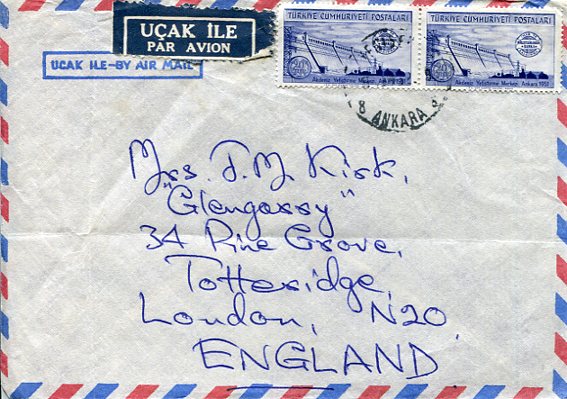 UÇAK İLE
PAR AVION
UÇAK İLE-BY AIR MAIL
TÜRKİYE CUMHURİYETİ POSTALARI
TÜRKİYE CUMHURİYETİ POSTALARI
Akdeniz Yetiştirme Merkezi, Ankara 1952
Akdeniz Yetiştirme Merkezi, Ankara 1952
8 ANKARA 8
Mrs. J. M. Kirk,
"Glengassy"
34 Pine Grove,
Totteridge,
London, N20.
ENGLAND